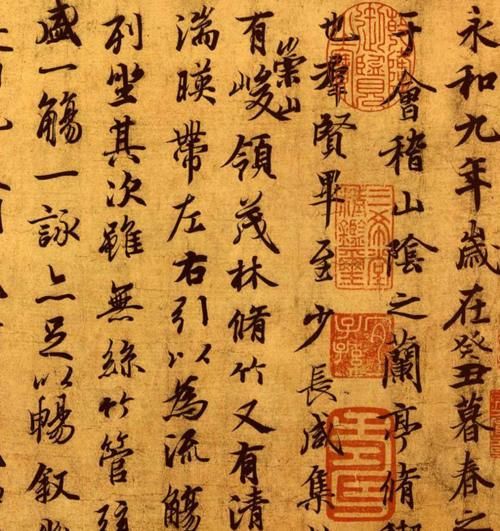 永和九年歲在癸丑暮春之
于會稽山陰之蘭亭脩
也羣賢畢至少長咸集
有崇山峻領茂林脩竹又有清
湍暎帶左右引以為流觴
列坐其次雖無絲竹管
盛一觴一詠亦足以暢敘
三希堂精鑑璽
宜子孫